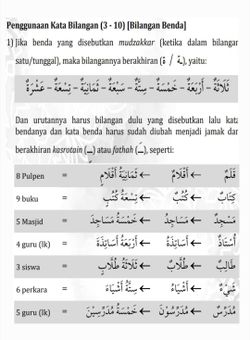 Penggunaan Kata Bilangan (3 - 10) [Bilangan Benda]
1) Jika benda yang disebutkan mudzakkar (ketika dalam bilangan
satu/tunggal), maka bilangannya berakhiran (ة / ـة), yaitu:
ثَلَاثَةٌ – أَرْبَعَةٌ – خَمْسَةٌ – سِتَّةٌ – سَبْعَةٌ – ثَمَانِيَةٌ – تِسْعَةٌ – عَشْرَةٌ
Dan urutannya harus bilangan dulu yang disebutkan lalu kata
bendanya dan kata benda harus sudah diubah menjadi jamak dan
berakhiran kasrotain (ـٍ) atau fathah (ـَ), seperti:
8 Pulpen = قَلَمٌ ← أَقْلَامٌ ← ثَمَانِيَةُ أَقْلَامٍ
9 buku = كِتَابٌ ← كُتُبٌ ← تِسْعَةُ كُتُبٍ
5 Masjid = مَسْجِدٌ ← مَسَاجِدُ ← خَمْسَةُ مَسَاجِدَ
4 guru (lk) = أُسْتَاذٌ ← أَسَاتِذَةٌ ← أَرْبَعَةُ أَسَاتِذَةٍ
3 siswa = طَالِبٌ ← طُلَّابٌ ← ثَلَاثَةُ طُلَّابٍ
6 perkara = شَيْءٌ ← أَشْيَاءُ ← سِتَّةُ أَشْيَاءَ
5 guru (lk) = مُدَرِّسٌ ← مُدَرِّسُوْنَ ← خَمْسَةُ مُدَرِّسِيْنَ